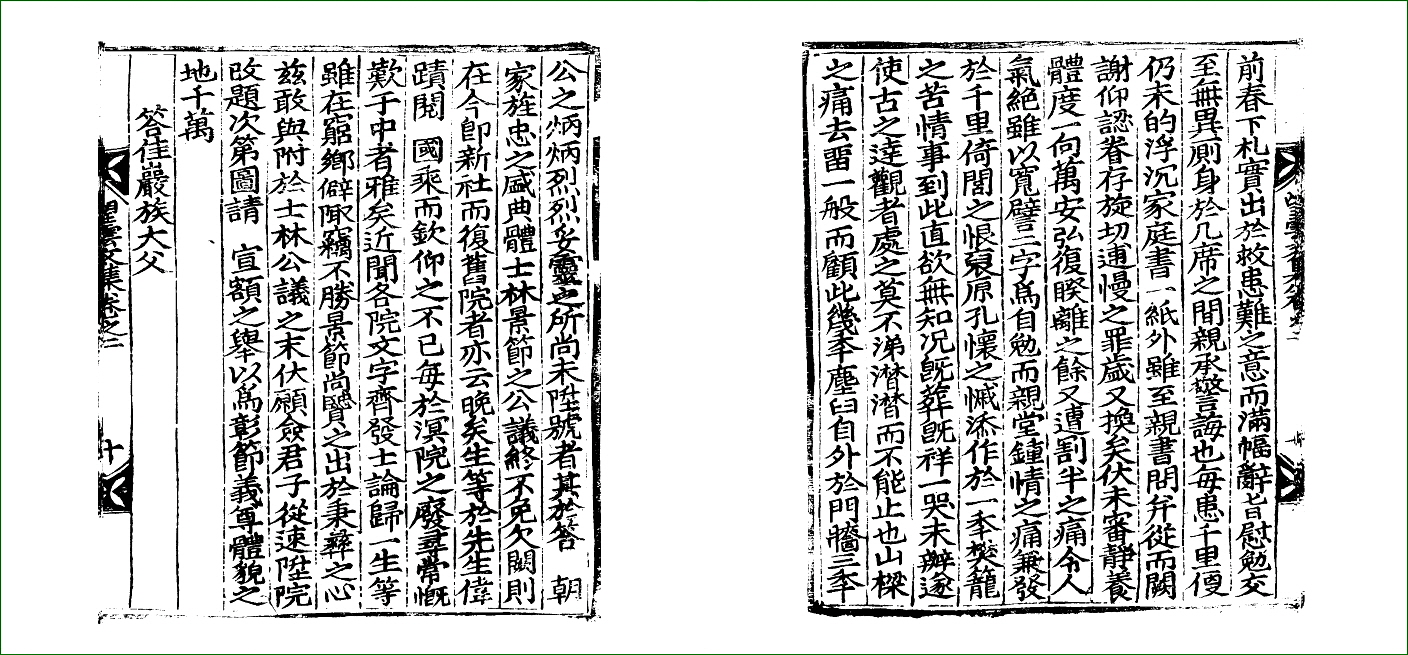 公之炳炳烈烈妥靈之所尚未陞號者其於答 朝
家旌忠之盛典體士林景節之公議終不免欠闕則
在今卽新社而復舊院者亦云晚矣生等於先生偉
蹟閱 國乘而欽仰之不已每於溟院之廢尋常慨
歎于中者雅矣近聞各院文字齊發士論歸一生等
雖在窮鄉僻陬竊不勝景節尚賢之出於秉彝之心
玆敢與附於士林公議之末伏願僉君子從速陞院
改題次第圖請 宣額之擧以爲彰節義尊體貌之
地千萬
答佳巖族大父
望雲文集卷之二
十
前春下札實出於救患難之意而滿幅辭旨慰勉交
至無異厠身於几席之間親承警誨也每患千里便
仍未的浮沉家庭書一紙外雖至親書問幷從而闕
謝仰認眷存旋切逋慢之罪歲又換矣伏未審靜養
體度一向萬安弘復睽離之餘又遭割半之痛令人
氣絶雖以寬譬二字爲自勉而親堂鍾情之痛兼發
於千里倚閭之恨裒原孔懷之慽添作於一秊樊籠
之苦情事到此直欲無知况旣葬旣祥一哭未辦遂
使古之達觀者處之莫不涕潸潸而不能止也山樑
之痛去畱一般而顧此幾秊塵臼自外於門牆三秊